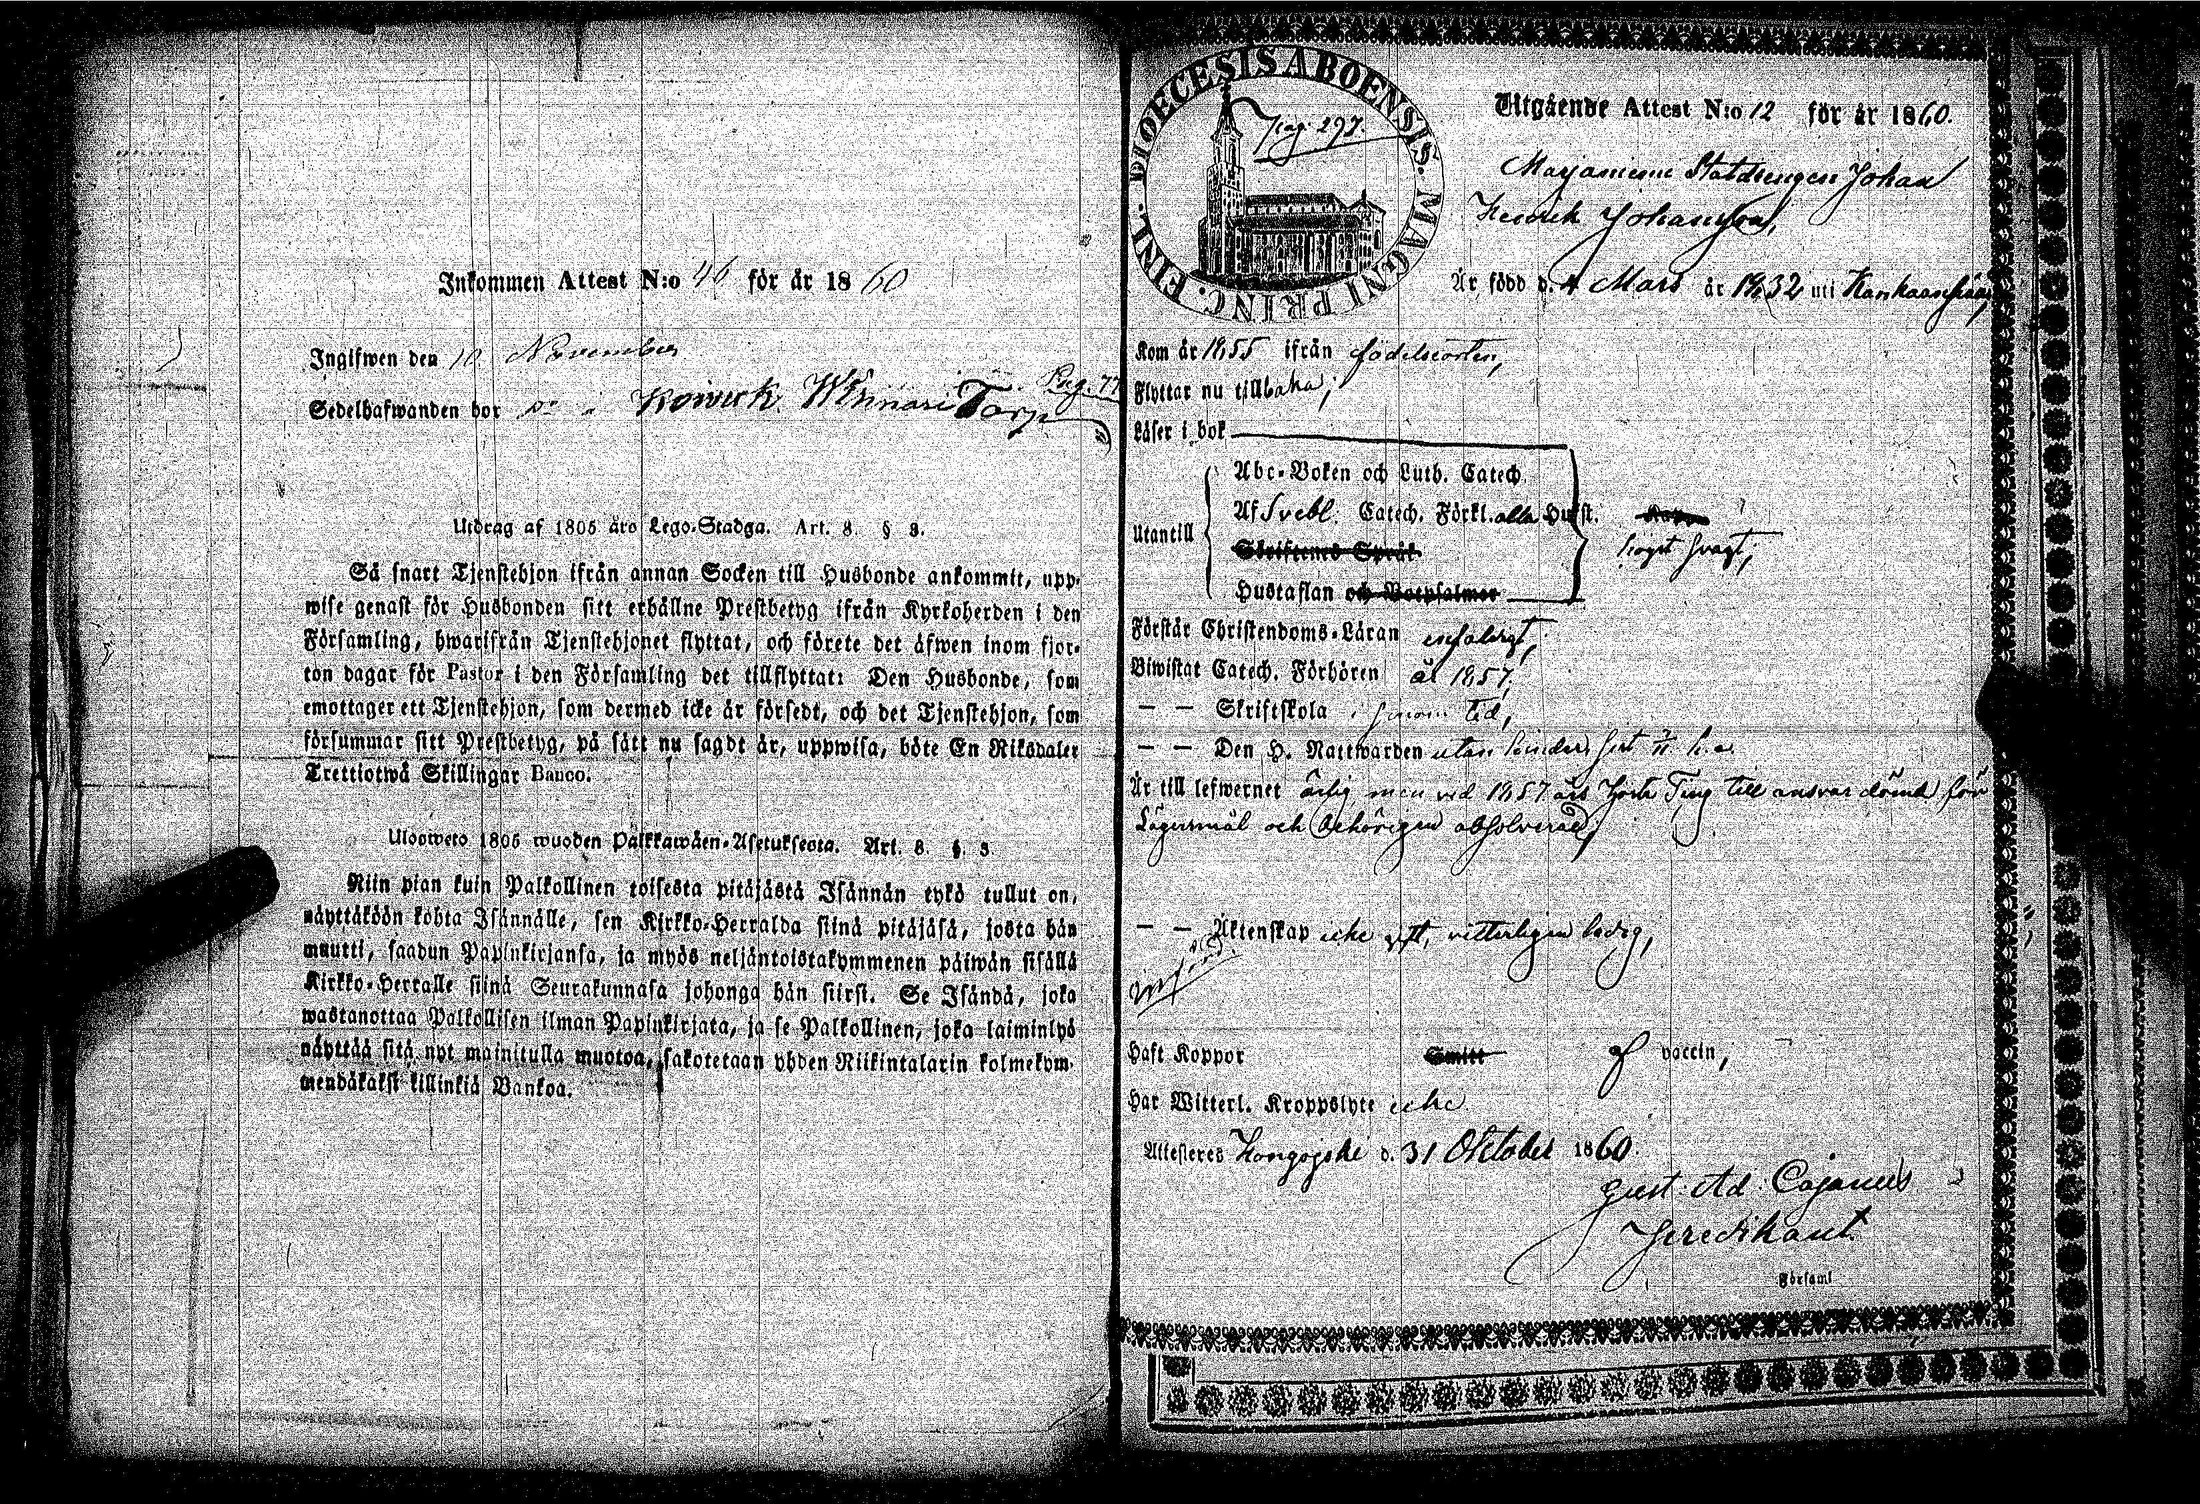 Inkommen Attest N:o 46 för år 1860
Ingifwen den 10 November
Pag. 77
Sedelhafwanden bor Torp
Utdrag af 1805 års Lego-Stadga. Art. 8. § 3.
Så snart Tjenstehjon ifrån annan Socken till Husbonde ankommit, upp-
wise genast för Husbonden sitt erhållne Prestbetyg ifrån Kyrkoherden i den
Församling, hwarifrån Tjenstehjonet flyttat, och förete det äfwen inom fjor-
ton dagar för Pastor i den Församling det tillflyttat: Den Husbonde, som
emottager ett Tjenstehjon, som dermed icke är försedt, och det Tjenstehjon, som
försummar sitt Prestbetyg, på sätt nu sagdt är, uppwisa, böte En Riksdaler
Trettiotwå Skillingar Banco.
Ulosweto 1805 wuoden Palkkawäen-Asetuksesta. Art. 8. §. 3.
Niin pian kuin Palkollinen toisesta pitäjästä Isännän tykö tullut on,
näyttäköön kohta Isännälle, sen Kirkko-Herralda siinä pitäjäsä, josta hän
muutti, saadun Papinkirjansa, ja myös neljäntoistakymmenen päiwän sisällä
Kirkko-Herralle siinä Seurakunnasa johonga hän siirsi. Se Isändä, joka
wastanottaa Palkollisen ilman Papinkirjata, ja se Palkollinen, joka laiminlyö
näyttää sitä nyt mainitulla muotoa, sakotetaan yhden Riikintalarin kolmekym-
mendäkaksi killinkiä Bankoa.
DIOECESIS ABOENSIS. MAGNI PRINC. FINL.
Pag. 297.
Utgående Attest N:o 12 för år 1860.
Statdrengen Johan
Henrik Johansson,
Är född d. 4 Mars år 1832 uti Kankaanpää,
Kom år 1855 ifrån födelseorten,
Flyttar nu tillbaka,
Läser i bok
Utantill
Abc-Boken och Luth. Catech.
Af Svebl. Catech. Förkl. alla Hufst.
Skriftenes Språk
Hustaflan och Botpsalmer
högst svagt,
Förstår Christendoms-Läran enfaldigt,
Biwistat Catech. Förhören år 1857,
— — Skriftskola i sinom tid,
— — Den H. Nattwarden utan hinder
Är till lefwernet ärlig men vid 1857 års Höste Ting till ansvar dömd för
Lägersmål och behörigen absolverad,
— — Äktenskap icke gift, vitterligen ledig,
Haft Koppor Smitt af vaccin,
Har Witterl. Kroppslyte icke
Attesteres Hongojoki d. 31 Oktober 1860.
Gust. Ad. Cajanus
Predikant
Församl